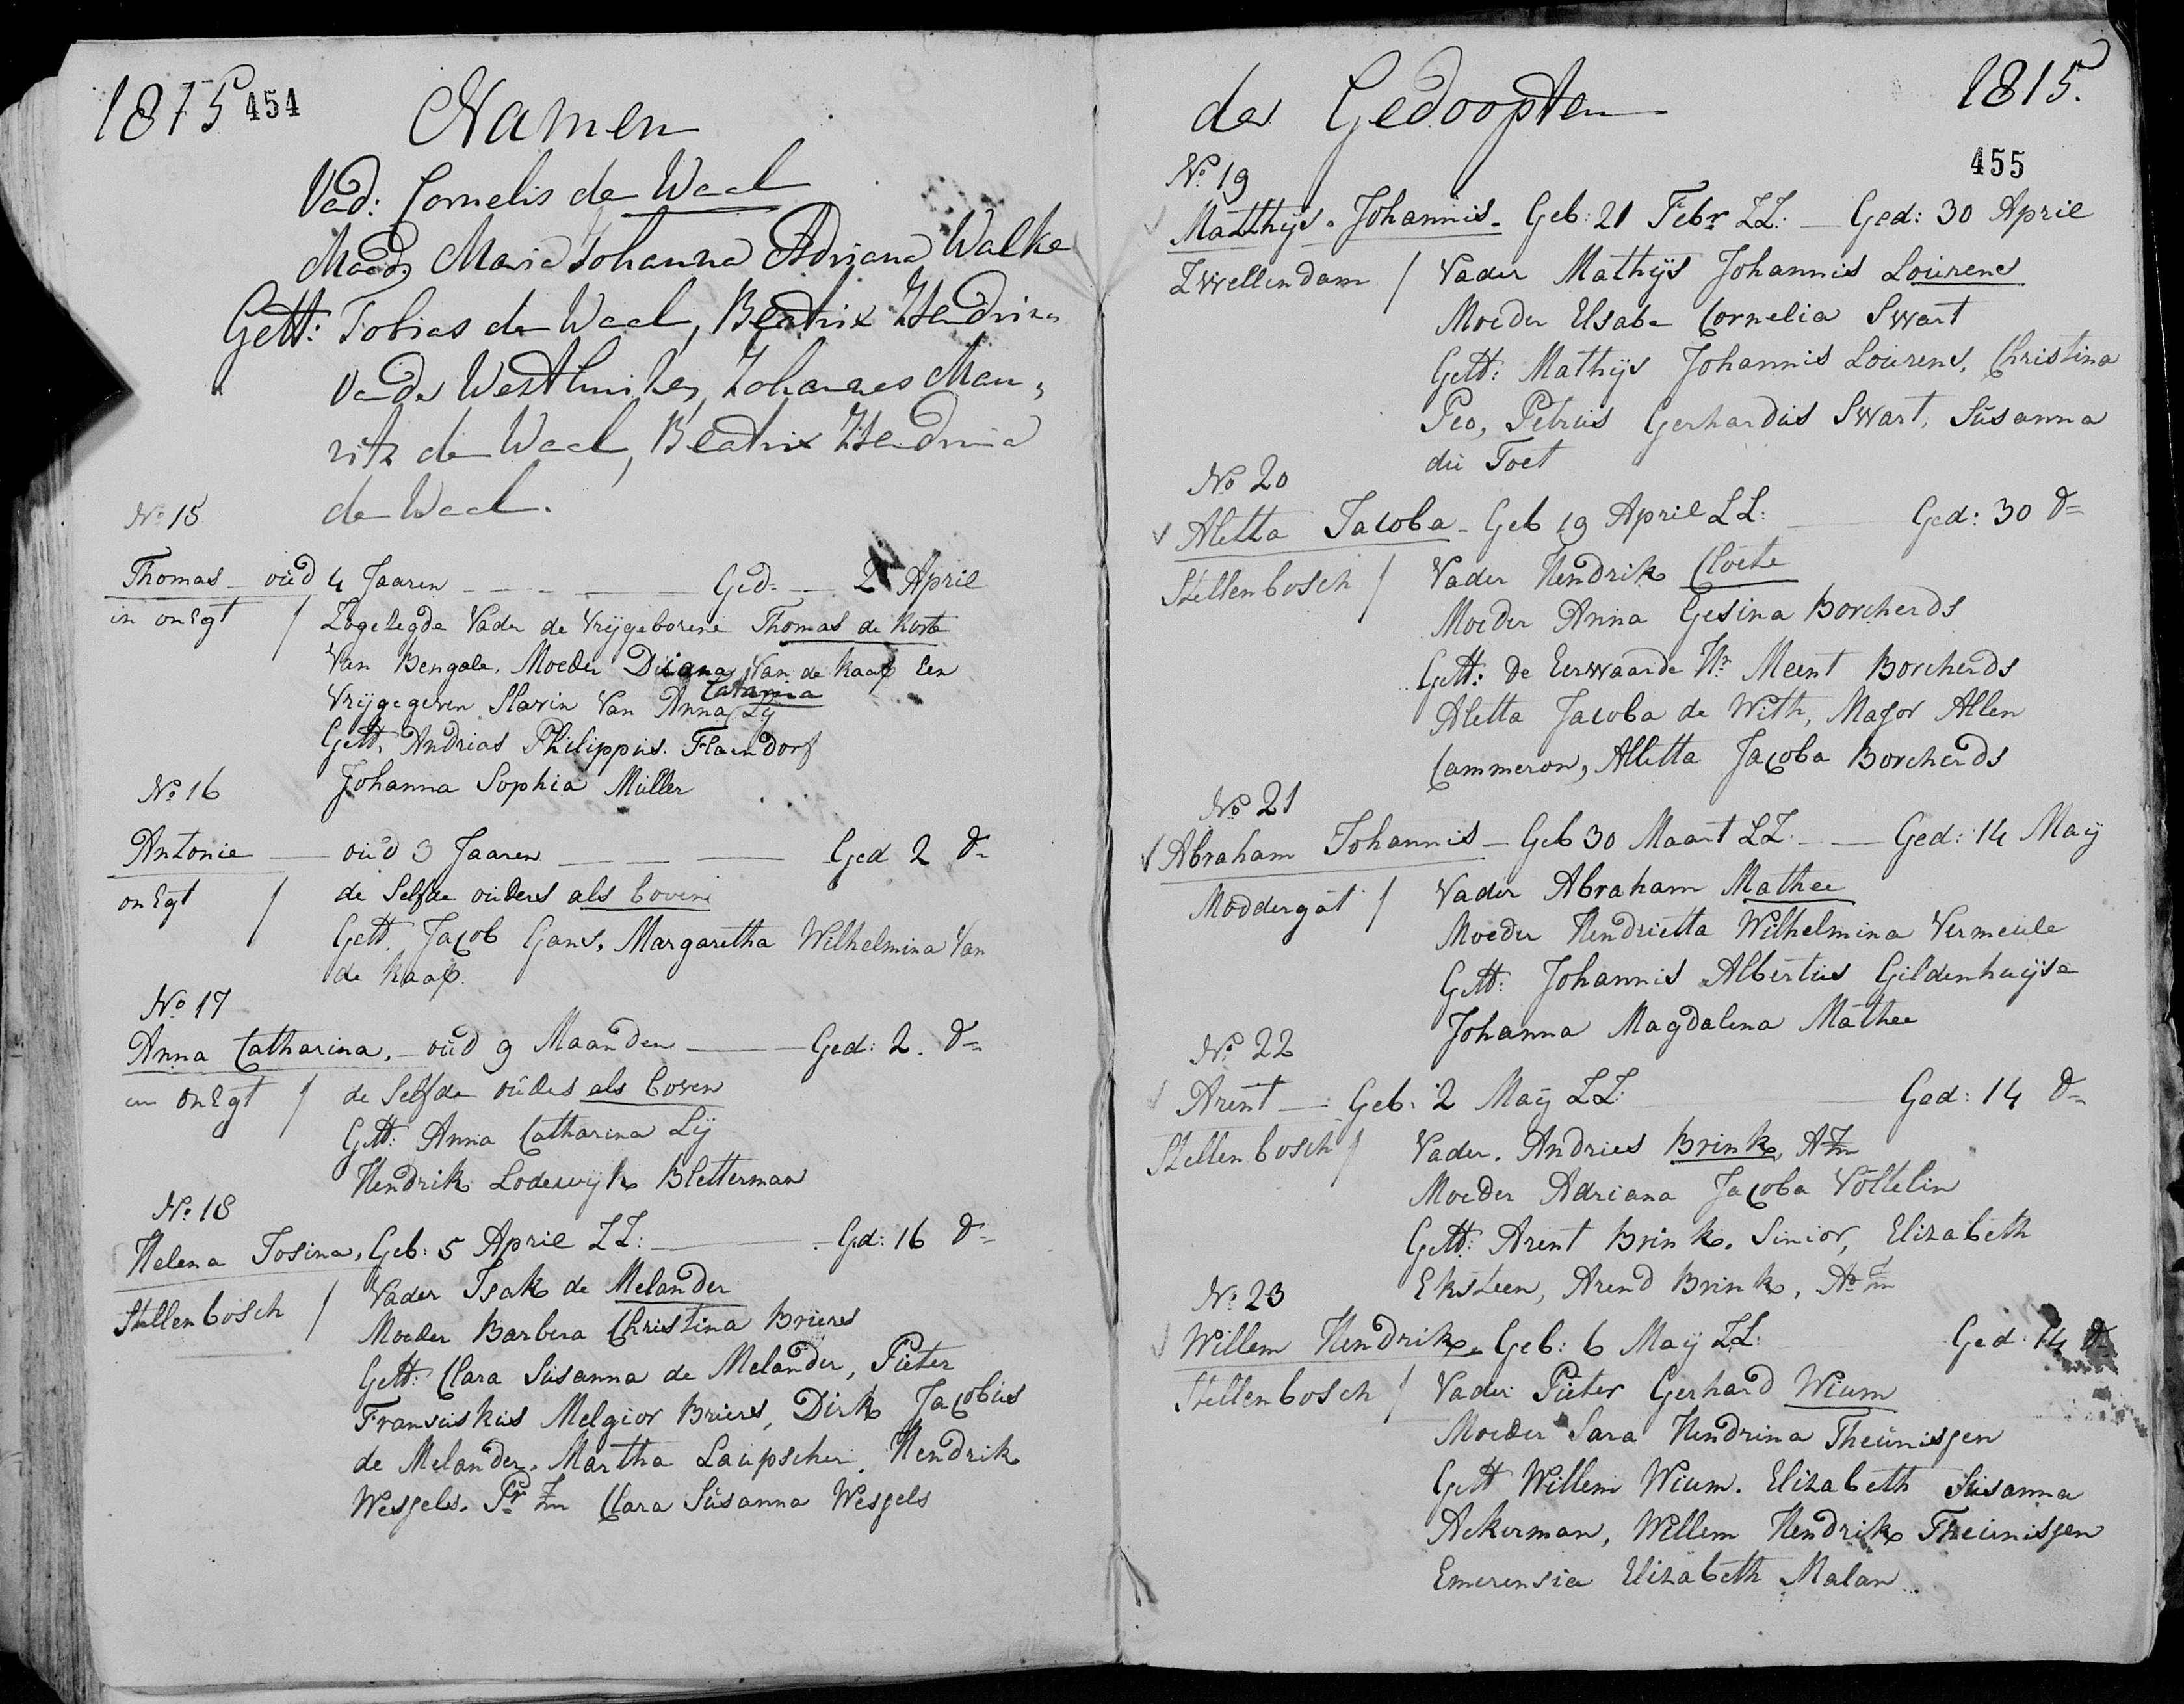 1815 454
Namen
Vad: Cornelis de Waal
Moed, Maria Johanna Adriana Walke
Gett: Tobias de Waal, Beatrix Hendrina
Vande Westhuizen, Johannes Mau,
ritz de Waal, Beatrix Hendrina
de Waal.
No 15
Thomas oud 4 Jaaren Ged: 2 April
in onEgt / Zogelegde Vader de Vrijgeborene Thomas de Kosta
Van Bengale, Moeder Diana Van de Kaap Een
Catarina
Vrijgegeven Slavin Van Anna Lij
Gett. Andrias Philippus. Flaendorf
Johanna Sophia Müller
No 16
Antonie oud 3 Jaaren Ged 2 do
onEgt / de Selfde ouders als boven
Gett. Jacob Gans, Margaretha Wilhelmina Van
de Kaap.
No 17
Anna Catharina. oud 9 Maanden Ged: 2. do
in onEgt / de Selfde oudes als boven
Gett: Anna Catharina Lij
Hendrik Lodewyk Bletterman
No 18
Helena Josina, Geb: 5 April LL: Gd: 16 do
Stellenbosch / Vader Isak de Melander
Moeder Barbera Christina Brüers
Gett: Clara Susanna de Melander, Pieter
Fransiskus Melgior Brüers, Dirk Jacobus
de Melander, Martha Laupscher. Hendrik
Wessels. Pr Zn Clara Susanna Wessels
der Gedoopten
1815.
455
No 19
Matthijs Johannis. Geb: 21 Febr LL: Ged: 30 April
Zwellendam / Vader Mathijs Johannis Lourens
Moeder Elsabe Cornelia Swart
Gett: Mathijs Johannis Lourens, Christina
Peo, Petrus Gerhardus Swart, Susanna
du Toet
No 20
Aletta Jacoba Geb 19 April LL: Ged: 30 do
Stellenbosch / Vader Hendrik Cloete
Moeder Anna Gesina Borcherds
Gett: de Eerwaarde Hr Meent Borcherds
Aletta Jacoba de With, Major Allen
Cammeron, Alletta Jacoba Borcherds
No 21
Abraham Johannis Geb 30 Maart LL Ged: 14 May
Moddergat / Vader Abraham Mathee
Moeder Hendrietta Wilhelmina Vermeule
Gett: Johannis Albertus Gildenhuijse
Johanna Magdalena Mathee
No 22
Arent Geb: 2 May LL: Ged: 14 do
Stellenbosch / Vader. Andries Brink, AZn
Moeder Adriana Jacoba Voltelin
Gett: Arent Brink. Sinior, Elizabeth
Eksteen, Arend Brink, Ao Zn
No 23
Willem Hendrik. Geb: 6 May LL: Ged 14 do
Stellenbosch / Vader Pieter Gerhard Wium
Moeder Sara Hendrina Theunissen
Gett Willem Wium. Elizabeth Susanna
Ackerman, Willem Hendrik Theunissen
Emerensia Elizabeth Malan.